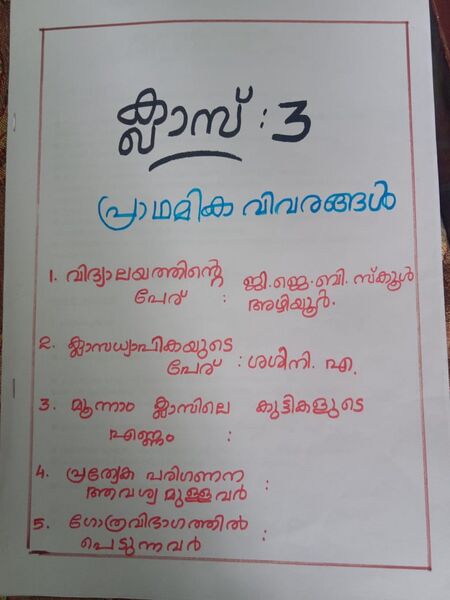 ക്ലാസ് : 3
പ്രാഥമിക വിവരങ്ങൾ
1. വിദ്യാലയത്തിന്റെ പേര് : ജി.ജെ.ബി. സ്കൂൾ
അഴിയൂർ.
2. ക്ലാസധ്യാപികയുടെ
പേര് : ശശീനി. എ.
3. മൂന്നാം ക്ലാസിലെ കുട്ടികളുടെ
എണ്ണം :
4. പ്രത്യേക പരിഗണന
ആവശ്യമുള്ളവർ :
5. ഗോത്രവിഭാഗത്തിൽ
പെട്ടുന്നവർ :